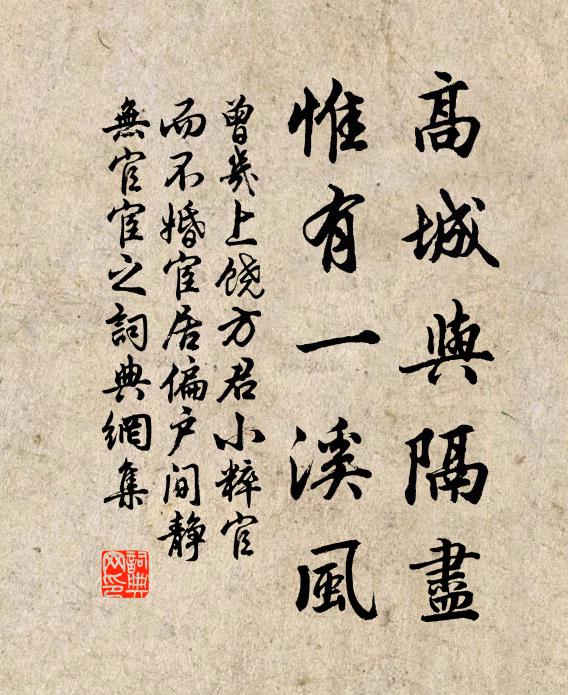 高城與隔盡
惟有一溪風
曾幾上饒方君小粹官
而不婚宦居偏户间靜
無官宦之詞典網集
詞典
网印